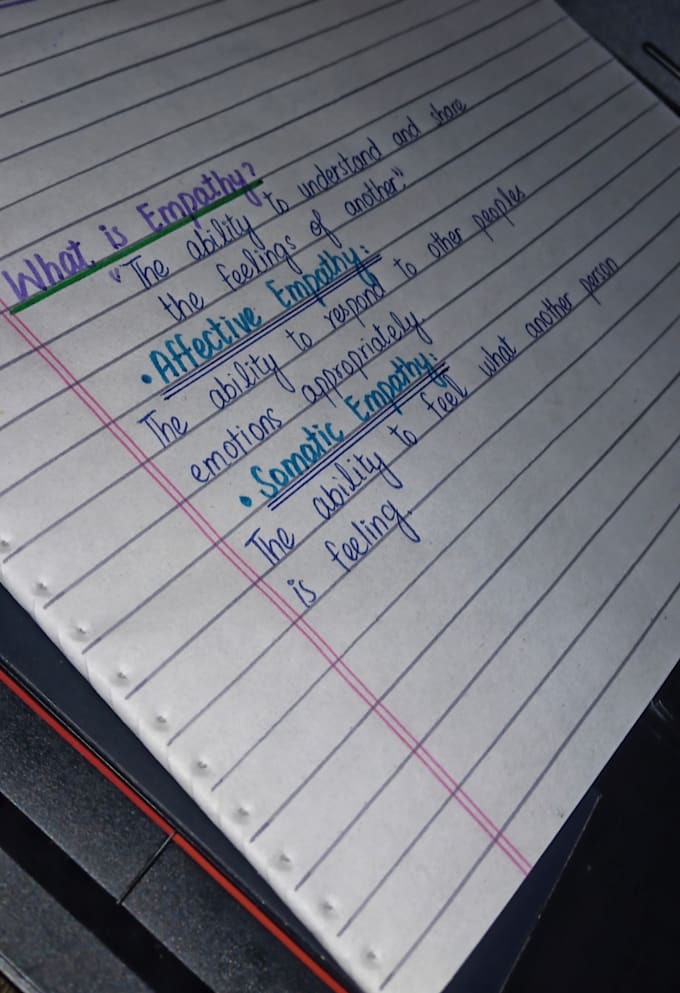 What is Empathy?
"The ability to understand and share
the feelings of another."
• Affective Empathy:
The ability to respond to other peoples
emotions appropriately.
• Somatic Empathy:
The ability to feel what another person
is feeling.